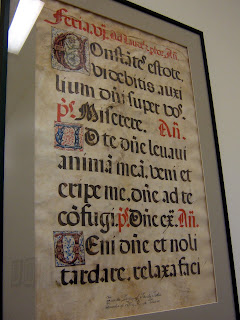 Feria. vj. Ad Laudes. et per horas. An.
Constātes estote
videbitis auxi
lium dñi super vos.
ps. Miserere. Añ.
Ad te dñe levavi
animā meā. veni et
eripe me. dñe ad te
cōfugi. ps. Dñe ex. Añ.
Veni dñe et noli
tardare. relaxa faci